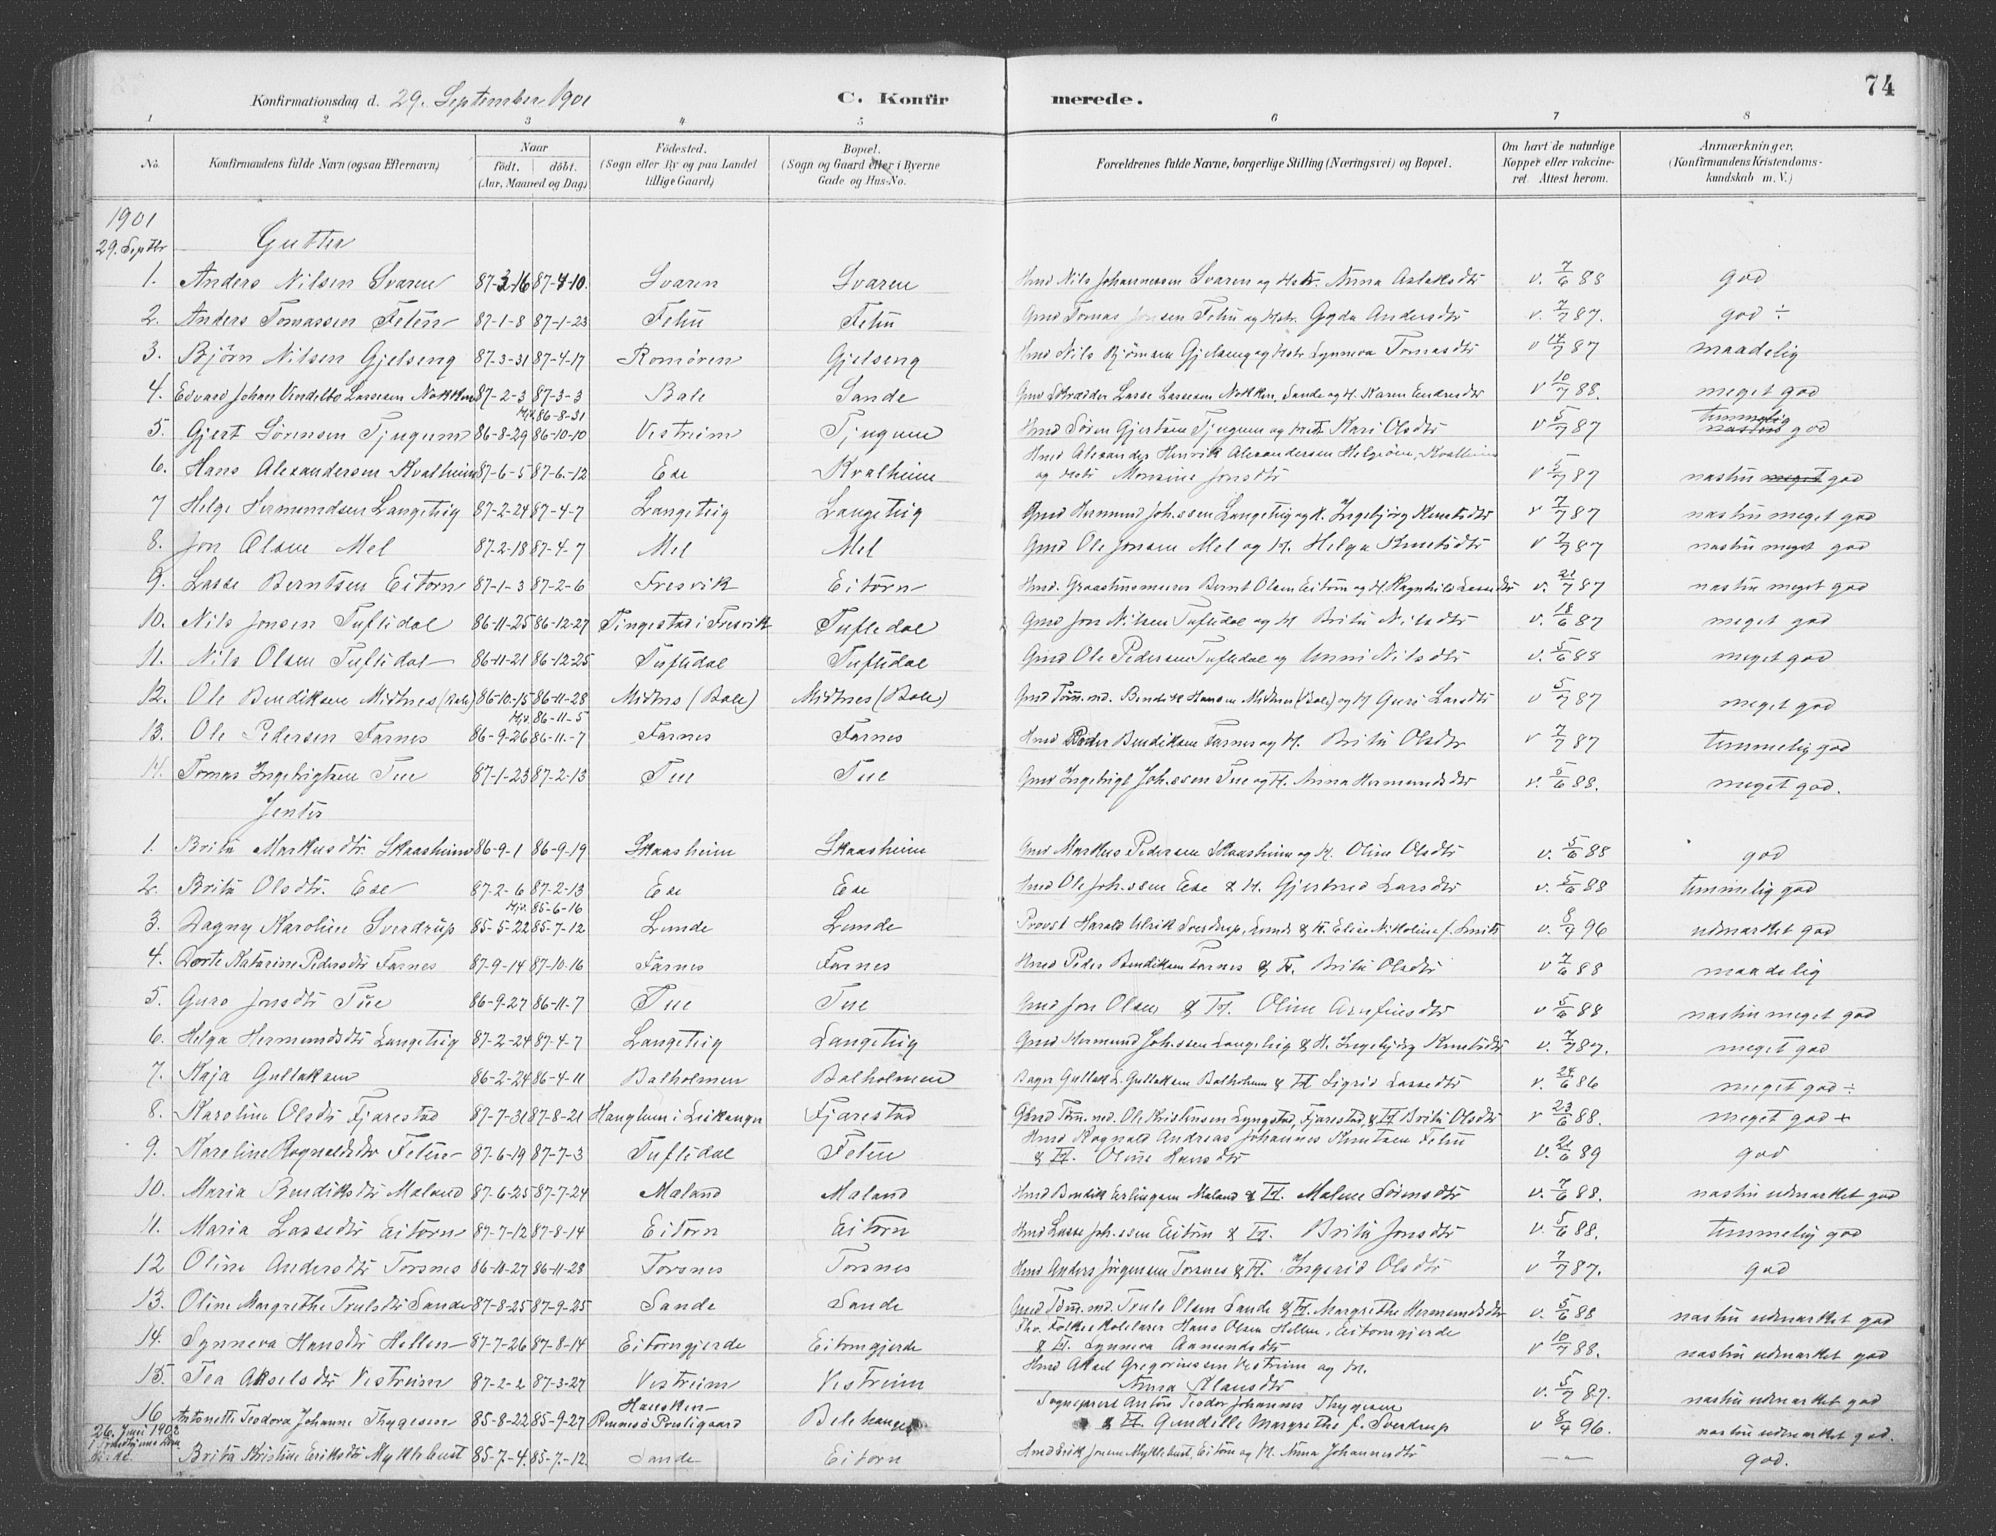 74
Konfirmationsdag d. 29. September 1901 C. Konfirmerede.
1 2 3 4 5 6 7 8
No. Konfirmandens fulde Navn (ogsaa Efternavn) Naar født. døbt. (Aar, Maaned og Dag) Fødested. (Sogn eller By og paa Landet tillige Gaard) Bopæl. (Sogn og Gaard eller i Byerne Gade og Hus-No. Forældrenes fulde Navne, borgerlige Stilling (Næringsvei) og Bopæl. Om havt de naturlige Kopper eller vakcineret. Attest herom. Anmærkninger, (Konfirmandens Kristendomskundskab m. V.)
1901
29. Septbr Gutter
1. Anders Nilsen Svaren 87-3-16 87-4-10. Svaren Svaren Nils Johannessen Svaren og Anna Aslaksdtr v. 7/6 88 god
2. Anders Tomassen Feten 87-1-8 87-1-23 Feten Feten Gmd Tomas Jonsen Feten og Gyda Andersdtr v. 7/7 87. god ÷
3. Bjørn Nilsen Gjelseng 87-3-31 87-4-17 Romøren Gjelseng Nils Bjørnsen Gjelseng og Synneva Tomasdtr v 14/7 87 maadelig
4. Edvard Johan Vindelbo Lassesen Nokken 87-2-3 87-3-3 Bale Sande Gmd Skræder Lasse Lassesen Nokken, Sande og H. Karen Endresdtr v 10/7 88. meget god
5. Gjert Sørensen Tjugum 86-8-29 Hjd. 86-8-31 86-10-10 Vestreim Tjugum Søren Gjertsen Tjugum og Kari Olsdtr v 5/7 87 temmelig god
6. Hans Alexandersen Kvalheim 87-6-5 87-6-12 Ese Kvalheim Alexander Henrik Alexandersen Kvalheim
og Monsine Jonsdtr v 5/7 87 næsten meget god
7 Helge Hermundsen Langeteig 87-2-24 87-4-7 Langeteig Langeteig Gmd Hermund Johssen Langeteig og H. Ingebjørg Knutsdtr v 7/7 87 næsten meget god
8. Jon Olsen Mel 87-2-18 87-4-7 Mel Mel Gmd Ole Jonsen Mel og H. Helga Knutsdtr v 7/7 87 næsten meget god
9. Lasse Berntsen Eitorn 87-1-3 87-2-6 Fresvik Eitorn Bernt Olsen Eitorn og H. Ragnhild Lassedtr v. 21/7 87 næsten meget god
10. Nils Jonsen Tuftedal 86-11-25 86-12-27 Tingestad i Fresvik Tuftedal Gmd Jon Nilsen Tuftedal og H Brita Nilsdtr v. 18/6 87 meget god
11. Nils Olsen Tuftedal 86-11-21 86-12-25 Tuftedal Tuftedal Gmd Ole Pedersen Tuftedal og Unni Nilsdtr v. 5/6 88 meget god
12. Ole Bendiksen Midtnes (Bale) 86-10-15 86-11-28 Midtnes (Bale) Midtnes (Bale) Gmd Tøm.md. Bendik Hansen Midtnes (Bale) og H Guri Larsdtr v 5/7 87 meget god
13. Ole Pedersen Farnes 86-9-26 Hjd. 86-11-5 86-11-7 Farnes Farnes Peder Bendiksen Farnes og H. Brita Olsdtr v 7/7 87 temmelig god
14. Tomas Ingebrigtsen Tue 87-1-23 87-2-13 Tue Tue Gmd Ingebrigt Johssen Tue og H. Anna Hermundsdtr v. 5/6 88. meget god.
Jenter
1. Brita Markusdtr. Skaasheim 86-9-1 86-9-19 Skaasheim Skaasheim Gmd Markus Pedersen Skaasheim og H. Oline Olsdtr v. 5/6 88 god
2. Brita Olsdtr. Ese 87-2-6 87-2-13 Ese Ese Ole Johssen Ese & H. Gjertrud Larsdtr v. 5/6 88 temmelig god
3. Dagny Karoline Sverdrup 85-5-22 Hjd. 85-6-16 85-7-12 Lunde Lunde Provst Harald Ulrik Sverdrup, Lunde & H. Elise Nikoline f. Smith v. 8/7 96 udmærket god
4. Dorte Katarine Pedersdtr Farnes 87-9-14 87-10-16 Farnes Farnes Peder Bendiksen Farnes & H. Brita Olsdtr v 7/6 88 maadelig
5. Guro Jonsdtr Tue 86-9-27 86-11-7 Tue Tue Gmd Jon Olsen & H. Oline Arnfinsdtr v 5/6 88 næsten meget god
6. Helga Hermundsdtr Langeteig 87-2-24 87-4-7 Langeteig Langeteig Gmd Hermund Johssen Langeteig & H. Ingebjørg Knutsdtr v. 7/7 87. meget god
7. Kaja Gullaksen 86-2-24 86-4-11 Balholmen Balholmen Bager Gullak L. Gullaksen Balholmen & H Sigrid Lassedtr v. 24/6 86 meget god ÷
8. Karoline Olsdtr Fjærestad 87-7-31 87-8-21 Hanglum i Leikanger Fjærestad Tøm.md. Ole Kristensen Lyngstad, Fjærestad, & H Brita Olsdtr v 23/6 88. meget god +
9. Kareline Ragnvaldsdtr Feten 87-6-19 87-7-3 Tuftedal Feten Ragnvald Andreas Johannes Knutsen Feten
& H. Oline Hansdtr v. 21/6 89 god
10. Maria Bendiksdtr Mæland 87-6-25 87-7-24 Mæland Mæland Bendik Erlingsen Mæland & H. Malene Sørensdtr v. 7/6 88. næsten udmærket god
11. Maria Lassedtr Eitorn 87-7-12 87-8-14 Eitorn Eitorn Lasse Johssen Eitorn & H. Brita Jonsdtr v. 5/6 88. temmelig god
12 Oline Andersdtr Torsnes 86-10-27 86-11-28 Torsnes Torsnes Anders Jørgensen Torsnes & H. Ingerid Olsdtr v 7/7 87. god
13. Oline Margrethe Trulsdtr Sande 87-8-25 87-9-25 Sande Sande Tøm.md. Truls Olsen Sande & H. Margrethe Hermundsdtr v. 5/6 88 næsten udmærket god
14. Synneva Hansdtr Hellen 87-7-26 87-8-14 Eitorngjerde Eitorngjerde Hans Olsen Hellen, Eitorngjerde
& H. Synneva Aamundsdtr v 10/7 88. næsten udmærket god
15. Tea Akselsdtr Vestreim 87-2-2 87-3-27 Vestreim Vestreim Aksel Gregoriussen Vestreim og H.
Anna Klausdtr v. 5/7 87. næsten udmærket god
16 Antonette Teodora Johanne Thygesen 85-8-22 85-9-27 Prestegaard Sogneprest Anton Teodor Johannes Thygesen
& H. Gunelle Margrethe f. Sverdrup v 8/4 96. næsten udmærket god.
26. Juni 1902
Brita Kristine Eriksdtr Myklebust 85-7-4. 85-7-12 Sande Eitorn Erik Jonsen Myklebust, Eitorn og H. Anna Johannesdtr — god.